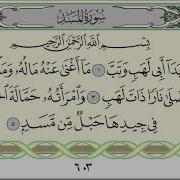 سُورَةُ المَسَدِ
بِسْمِ اللَّهِ الرَّحْمَٰنِ الرَّحِيمِ
يَدَآ أَبِي لَهَبٍ وَتَبَّ ١ مَآ أَغْنَىٰ عَنْهُ مَالُهُۥ وَمَ
صْلَىٰ نَارًا ذَاتَ لَهَبٍ ٣ وَامْرَأَتُهُۥ حَمَّالَةَ الْحَ
فِي جِيدِهَا حَبْلٌ مِّن مَّسَدٍ ٥
٦٠٣